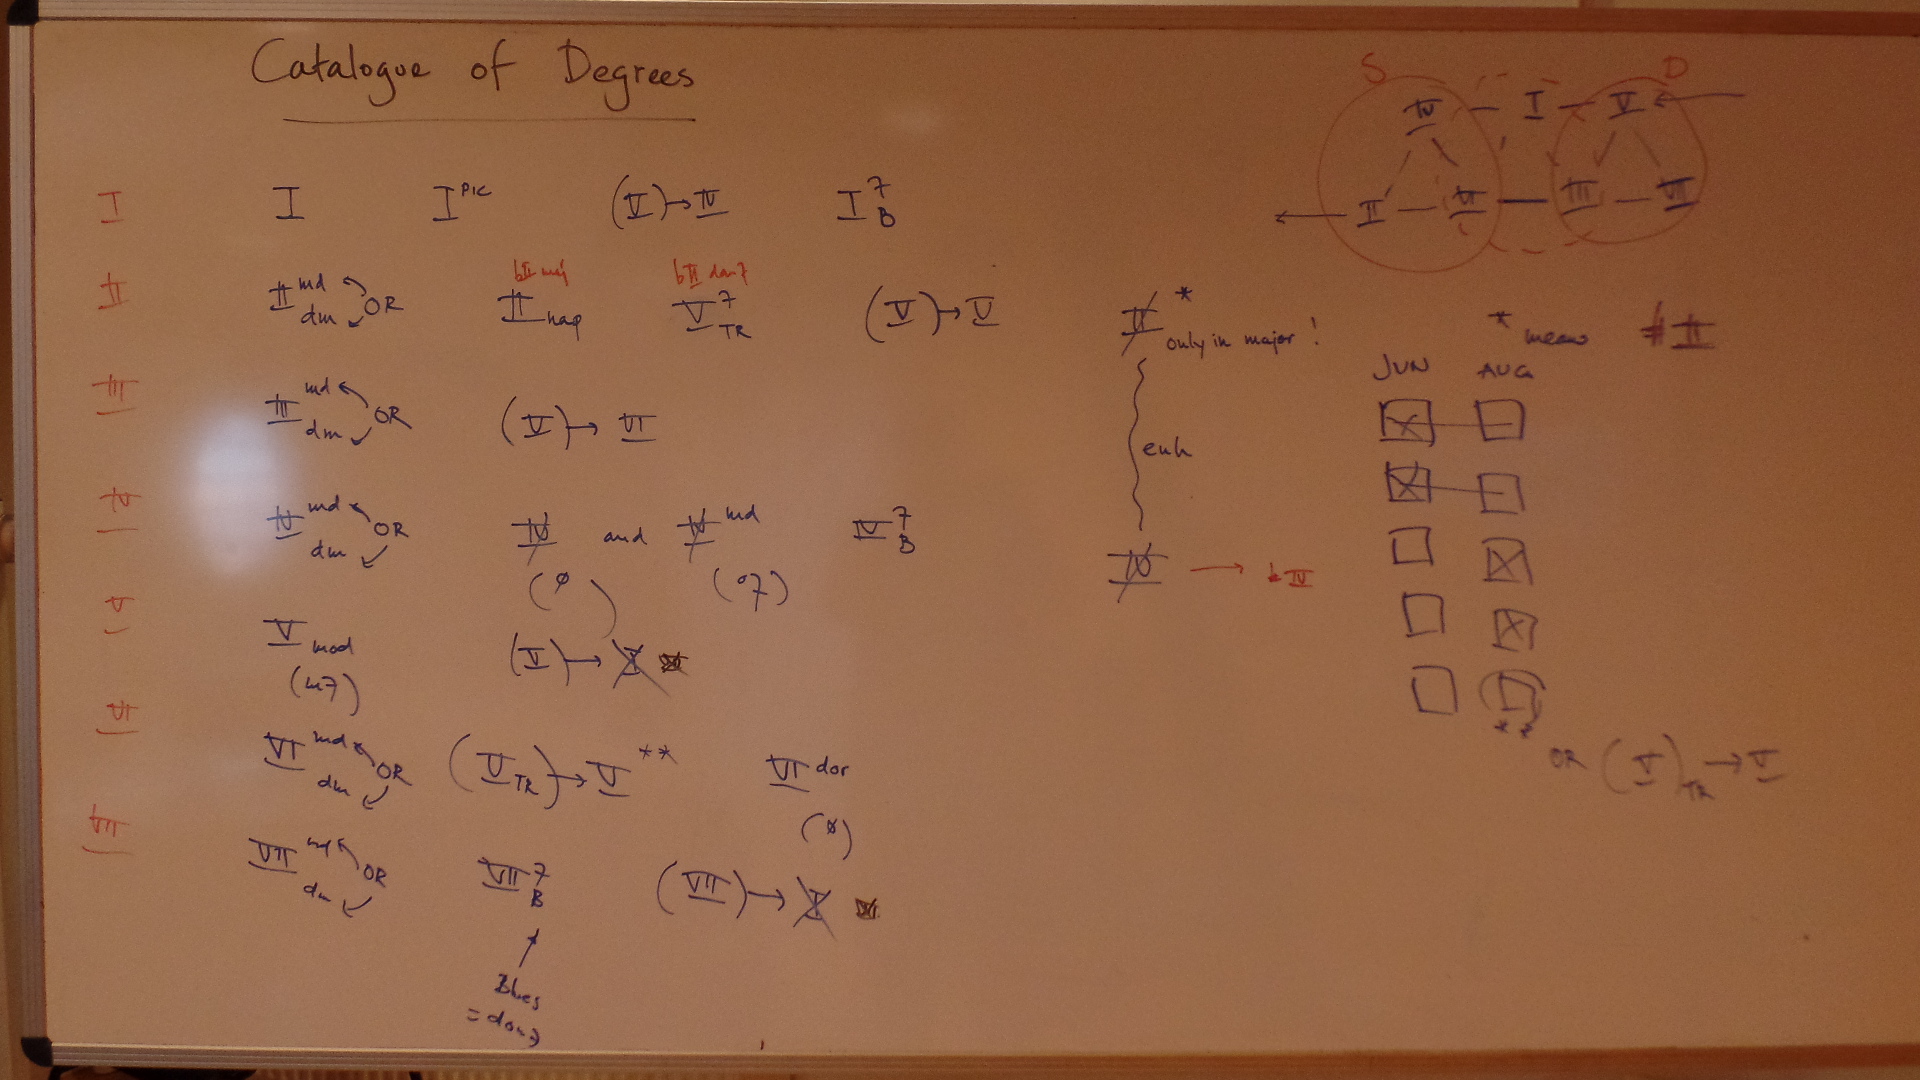 Catalogue of Degrees
S D
IV — I — V ←
← II — VI — III — VII
I I I PIC (V) → IV I 7 B
bII maj bII dom7
II II md dm OR II nap V 7 TR (V) → V
IV * only in major! * means #II
III III md dm OR (V) → VI
JUN AUG
enh
IV IV md dm OR IV and IV md IV 7 B
(ø) (o7)
IV → bIV
V V mod (V) → I
(m7)
VI VI md dm OR (V TR) → V ** VI dor
(ø)
**
OR (V) TR → V
VII VII md dm OR VII 7 B (VII) → I
Blues
= dom7